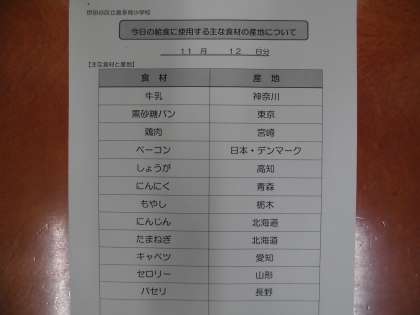 世田谷区立奥沢小学校
今日の給食に使用する主な食材の産地について
11 月 12 日分
【主な食材と産地】
食 材 産 地
牛乳 神奈川
黒砂糖パン 東京
鶏肉 宮崎
ベーコン 日本・デンマーク
しょうが 高知
にんにく 青森
もやし 栃木
にんじん 北海道
たまねぎ 北海道
キャベツ 愛知
セロリー 山形
パセリ 長野